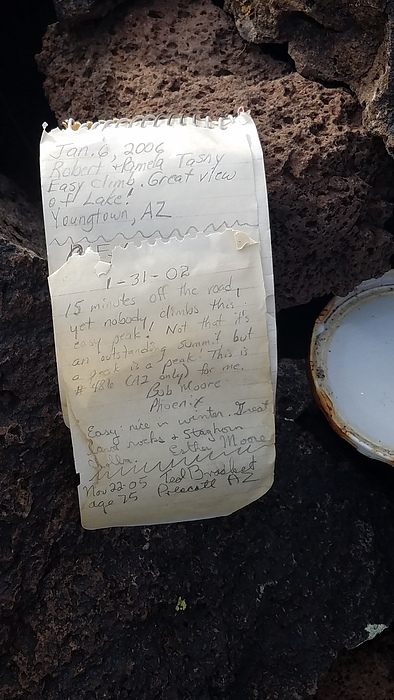 Jan. 6, 2006
Robert & Pamela Tashy
Easy climb. Great view
of Lake!
Youngtown, AZ
1-31-02
15 minutes off the road,
yet nobody climbs this
easy peak! Not that it's
an outstanding summit but
a peak is a peak! This is
(AZ only) for me.
Bob Moore
Phoenix
Easy: nice in winter. Great
rocks & staghorn
Esther Moore
Nov 22-05 Ted Brasket
age 75 Prescott AZ